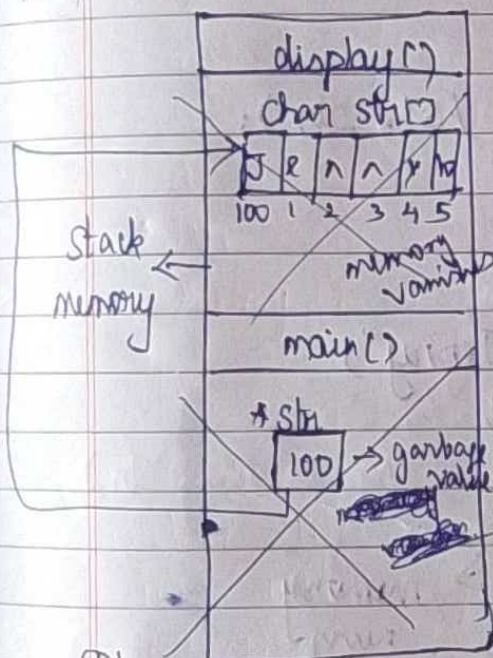 display()
char str[]
J e n n y \0
100 1 2 3 4 5
Stack
memory
memory
vanishes
main()
*str
100 → garbage
value